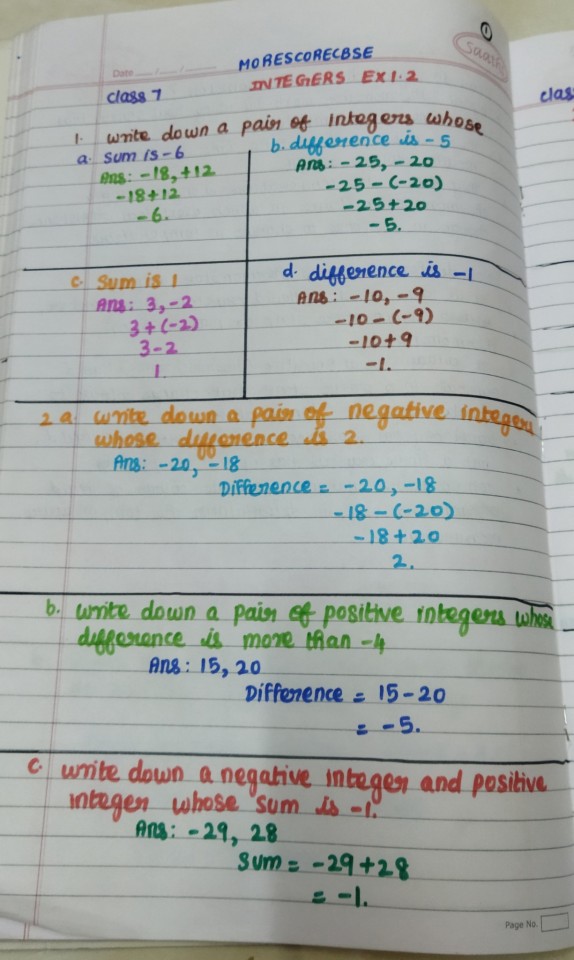 ①
Saasri
MORESCORECBSE
Date ___/___/___
INTEGERS EX 1.2
class 7
1. write down a pair of Integers whose
a. sum is -6
Ans: -18, +12
-18+12
-6.
b. difference is -5
Ans: -25, -20
-25-(-20)
-25+20
-5.
c. sum is 1
Ans: 3, -2
3+(-2)
3-2
1.
d. difference is -1
Ans: -10, -9
-10-(-9)
-10+9
-1.
2 a. write down a pair of negative integers
whose difference is 2.
Ans: -20, -18
Difference = -20, -18
-18-(-20)
-18+20
2.
b. write down a pair of positive integers whose
difference is more than -4
Ans: 15, 20
Difference = 15-20
= -5.
c. write down a negative integer and positive
integer whose sum is -1.
Ans: -29, 28
Sum = -29+28
= -1.
Page No.
clas